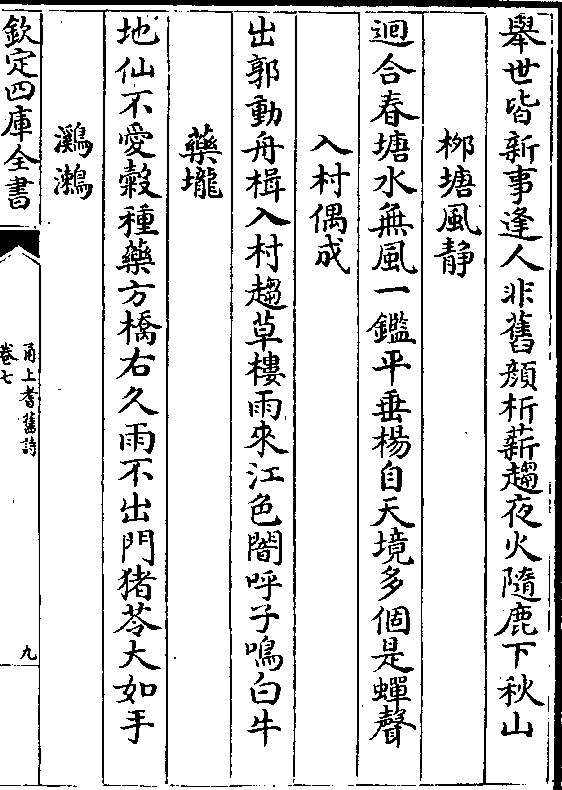 舉世皆新事逢人非舊顔析薪趨夜火隨鹿下秋山
栁塘風静
迴合春塘水無風一鑑平垂楊自天境多個是蟬聲
入村偶成
出郭動舟楫入村趨草樓雨來江色闇呼子鳴白牛
藥壠
地仙不愛榖種藥方橋右久雨不出門猪苓大如手
鸂鷘
欽定四庫全書
甬上耆舊詩
卷七
九